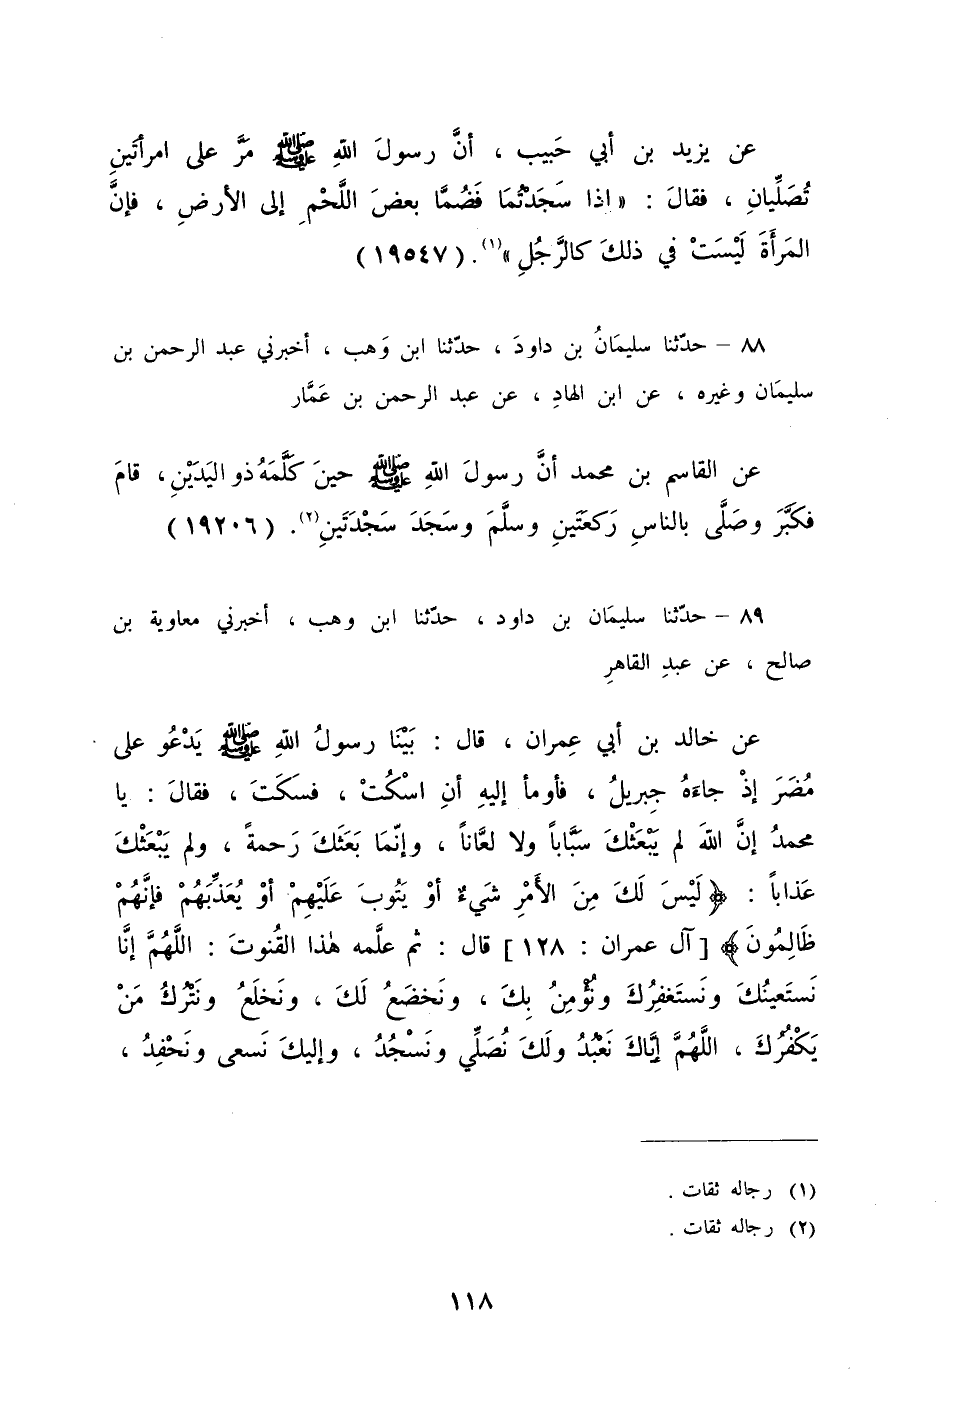 عن يزيد بن أبي حَبيب ، أنَّ رسولَ اللهِ ﷺ مَرَّ على امرأتَينِ
تُصَلِّيانِ ، فقالَ : « اذا سَجَدْتُمَا فَضُمَّا بعضَ اللَّحْمِ إلى الأرضِ ، فإنَّ
المَرأَةَ لَيْسَتْ في ذلكَ كالرَّجُلِ »(١). (١٩٥٤٧)
٨٨ – حدّثنا سليمَانُ بن داودَ ، حدّثنا ابن وَهب ، أخبرني عبد الرحمن بن
سليمَان وغيره ، عن ابن الهادِ ، عن عبد الرحمن بن عَمَّار
عن القاسم بن محمد أنَّ رسولَ اللهِ ﷺ حينَ كَلَّمَهُ ذو اليَدَيْنِ ، قامَ
فكَبَّرَ وصَلَّى بالناسِ رَكعَتَينِ وسلَّمَ وسَجَدَ سَجْدَتَينِ(٢). (١٩٢٠٦)
٨٩ – حدّثنا سليمَان بن داود ، حدّثنا ابن وهب ، أخبرني معاوية بن
صالح ، عن عبدِ القاهرِ
عن خالد بن أبي عِمران ، قال : بَيْنَا رسولُ اللهِ ﷺ يَدْعُو على
مُضَرَ إذْ جاءَهُ جِبريلُ ، فأومأ إليهِ أنِ اسْكُتْ ، فسَكَتَ ، فقالَ : يا
محمدُ إنَّ اللهَ لم يَبْعَثْكَ سَبَّاباً ولا لعَّاناً ، وإنّمَا بَعَثَكَ رَحمةً ، ولم يَبْعَثْكَ
عَذاباً : ﴿ لَيْسَ لَكَ مِنَ الأَمْرِ شَيءٌ أوْ يَتُوبَ عَلَيْهِمْ أوْ يُعَذِّبَهُمْ فإنَّهُمْ
ظَالِمُونَ ﴾ [ آل عمران : ١٢٨ ] قال : ثم علَّمه هٰذا القُنوتَ : اللَّهُمَّ إنَّا
نَستَعينُكَ ونَستَغفِرُكَ ونُؤْمِنُ بِكَ ، ونَخضَعُ لَكَ ، ونَخلَعُ ونَتْرُكُ مَنْ
يَكْفُرُكَ ، اللَّهُمَّ إيَّاكَ نَعْبُدُ ولَكَ نُصَلِّي ونَسْجُدُ ، وإليكَ نَسعى ونَحْفِدُ ،
(١) رجاله ثقات .
(٢) رجاله ثقات .
١١٨